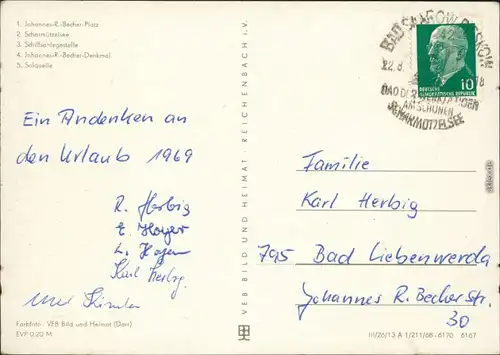 1. Johannes-R.-Becher-Platz
2. Scharmützelsee
3. Schiffsanlegestelle
4. Johannes-R.-Becher-Denkmal
5. Solquelle
Ein Andenken an
den Urlaub 1969
R. Herbig
E. Hoyer
Karl Herbig
Farbfoto: VEB Bild und Heimat (Darr)
EVP 0,20 M
VEB BILD UND HEIMAT · REICHENBACH I. V.
BAD SAAROW-PIESKOW
22.8.
18
BAD DER WERKTÄTIGEN
AM SCHÖNEN
SCHARMÜTZELSEE
10
DEUTSCHE
DEMOKRATISCHE REPUBLIK
Familie
Karl Herbig
795 Bad Liebenwerda
Johannes R. Becherstr.
30
III/26/13 A 1/211/68 · 6170 6167